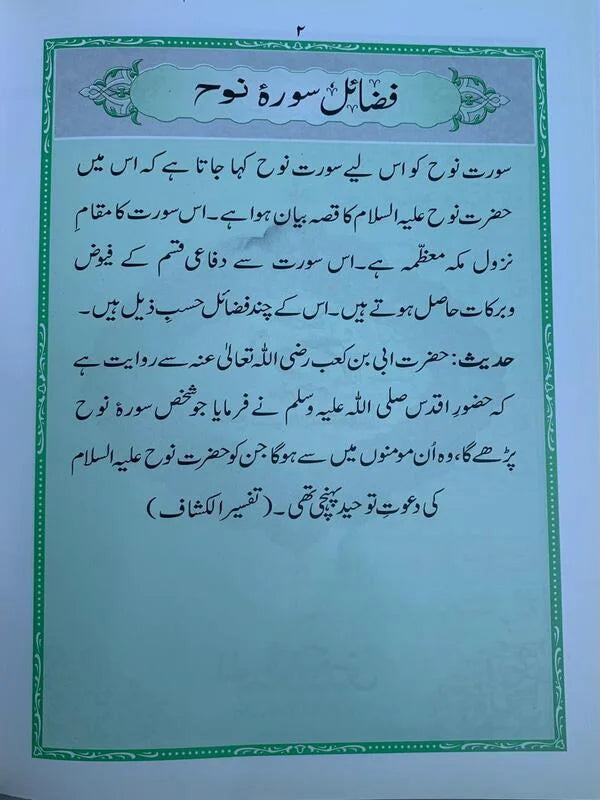 ۲
فضائل سورۂ نوح
سورت نوح کو اس لیے سورت نوح کہا جاتا ہے کہ اس میں
حضرت نوح علیہ السلام کا قصہ بیان ہوا ہے۔ اس سورت کا مقامِ
نزول مکہ معظّمہ ہے۔ اس سورت سے دفاعی قسم کے فیوض
و برکات حاصل ہوتے ہیں۔ اس کے چند فضائل حسبِ ذیل ہیں۔
حدیث: حضرت ابی بن کعب رضی اللہ تعالیٰ عنہ سے روایت ہے
کہ حضورِ اقدس صلی اللہ علیہ وسلم نے فرمایا جو شخص سورۂ نوح
پڑھے گا، وہ اُن مومنوں میں سے ہوگا جن کو حضرت نوح علیہ السلام
کی دعوتِ توحید پہنچی تھی۔ (تفسیر الکشاف)